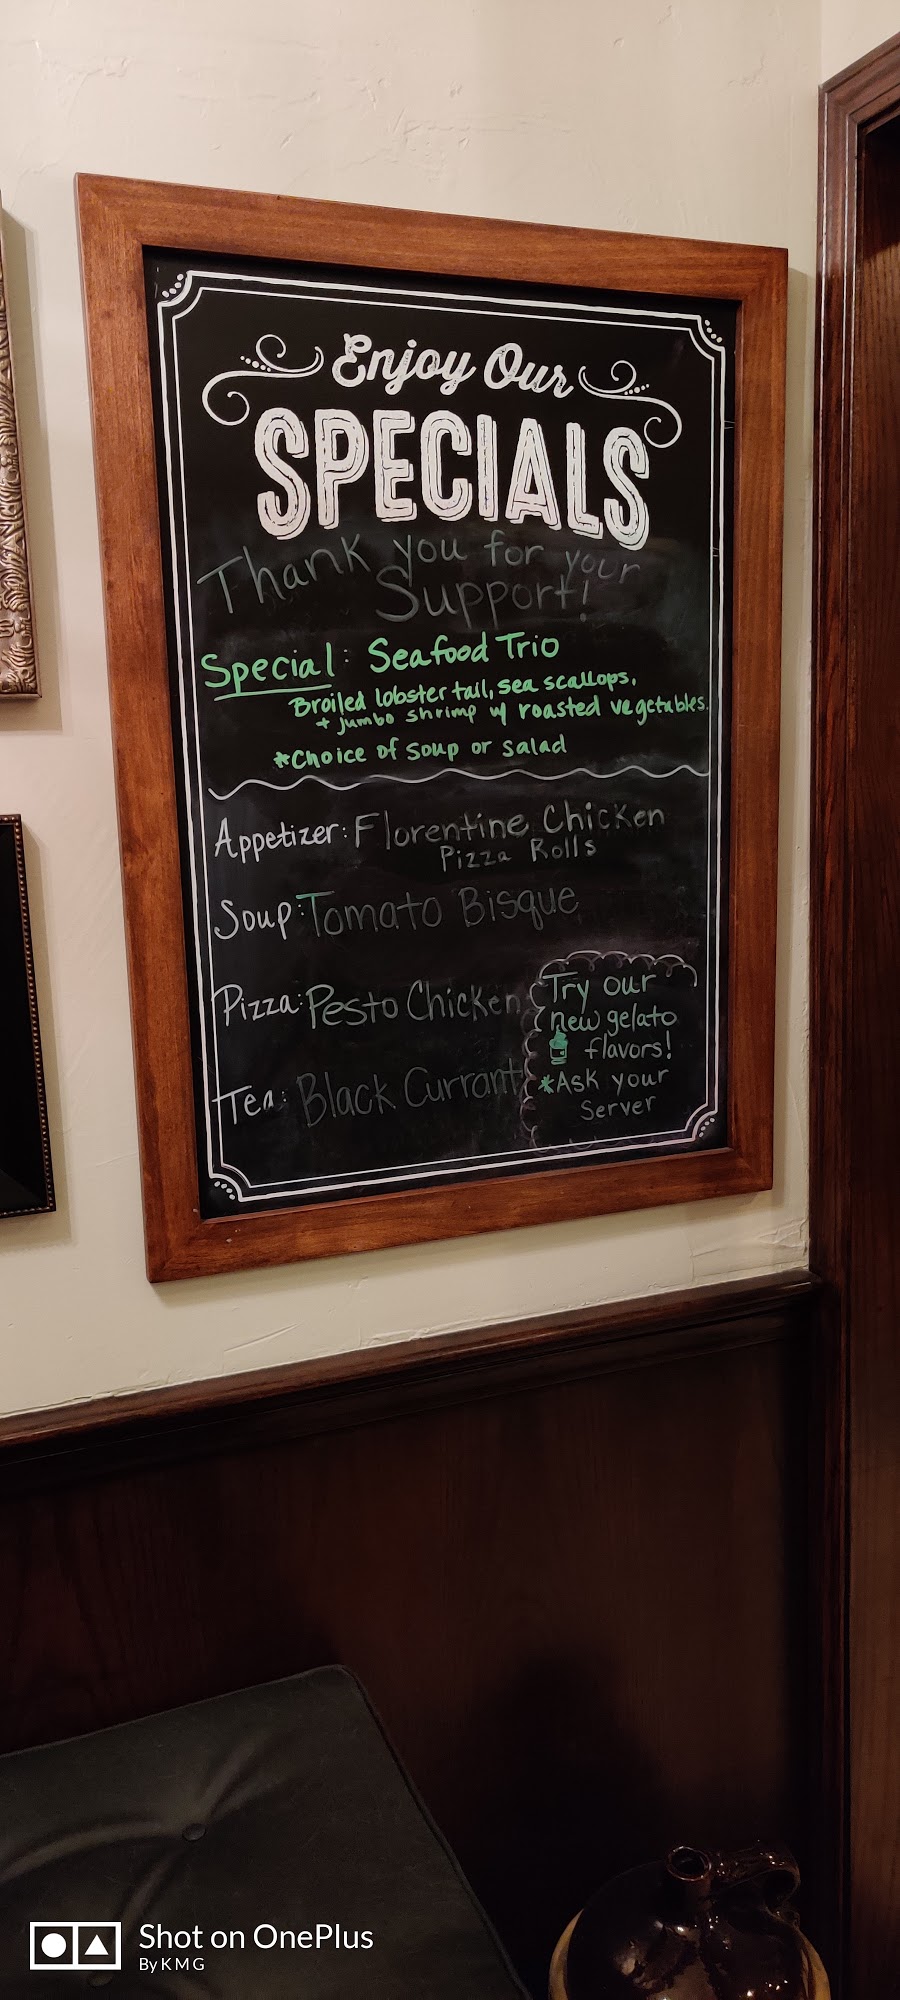 Enjoy Our
SPECIALS
Thank you for your
Support!
Special: Seafood Trio
Broiled lobster tail, sea scallops,
+ jumbo shrimp w/ roasted vegetables.
*Choice of soup or salad
Appetizer: Florentine Chicken
Pizza Rolls
Soup: Tomato Bisque
Pizza: Pesto Chicken
Tea: Black Currant
Try our
new gelato
flavors!
*Ask your
Server
Shot on OnePlus
By K M G